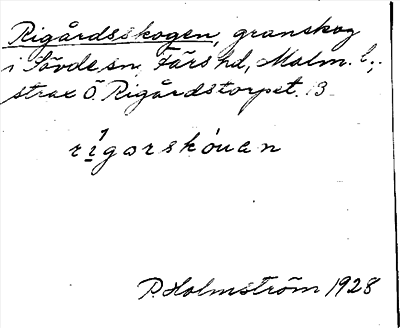 Rigårdsskogen, granskog
i Sövde sn, Färs hd, Malm. l.,
strax Ö. Rigårdstorpet. B.
rigorskóuan
P. Holmström 1928